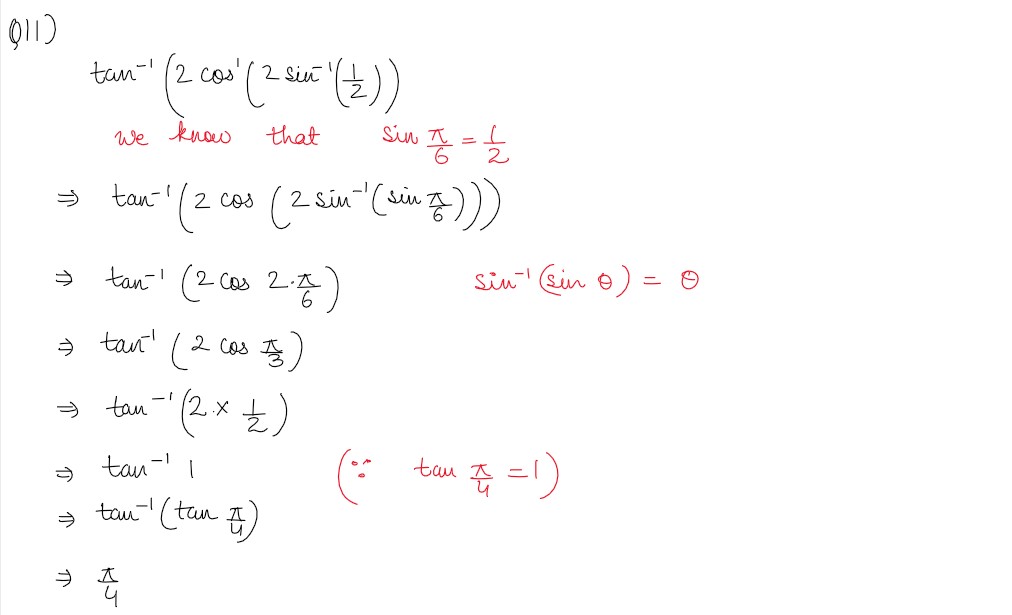 Q11)
tan⁻¹ (2 cos' (2 sin⁻¹ (1/2))
we know that sin π/6 = 1/2
⇒ tan⁻¹ (2 cos (2 sin⁻¹ (sin π/6)))
⇒ tan⁻¹ (2 cos 2·π/6) sin⁻¹ (sin θ) = θ
⇒ tan⁻¹ (2 cos π/3)
⇒ tan⁻¹ (2 × 1/2)
⇒ tan⁻¹ 1 (∵ tan π/4 = 1)
⇒ tan⁻¹ (tan π/4)
⇒ π/4